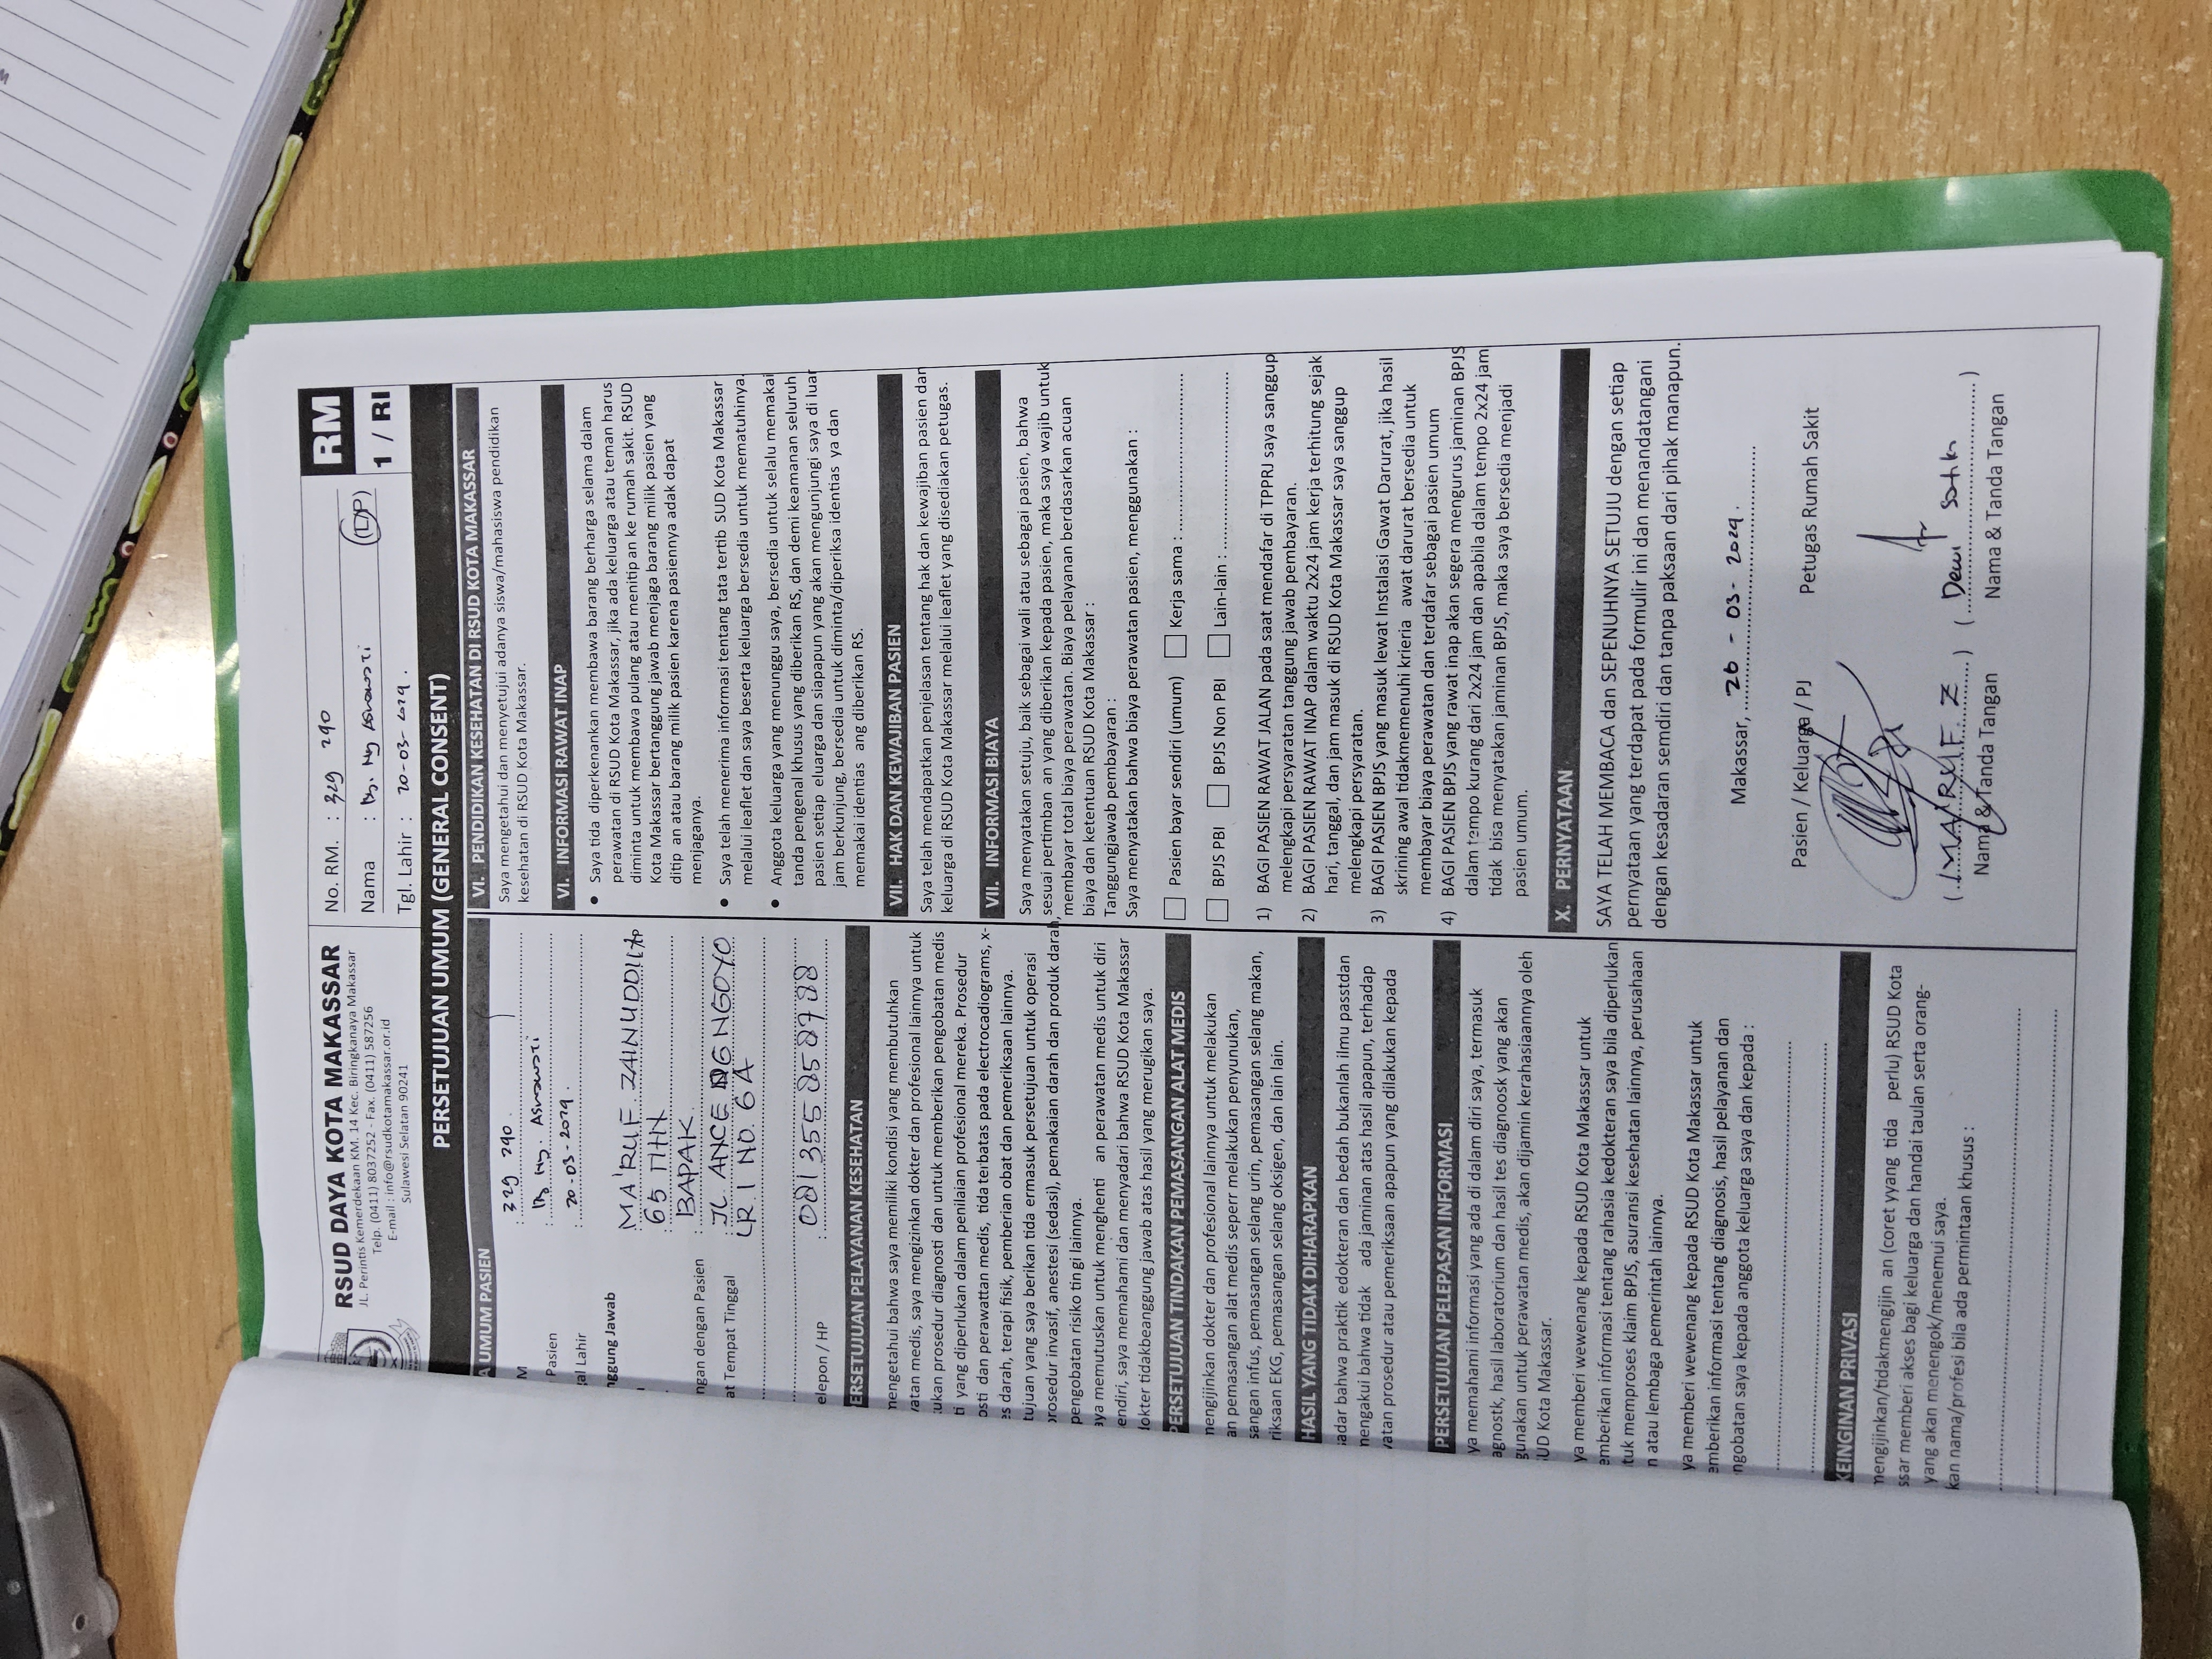 RSUD DAYA KOTA MAKASSAR
JL. Perintis Kemerdekaan KM. 14 Kec. Biringkanaya Makassar
Telp. (0411) 8037252 - Fax. (0411) 587256
E-mail : info@rsudkotamakassar.or.id
Sulawesi Selatan 90241
No. RM. : 329 290
Nama : By. Ny Asnawati (L/P)
Tgl. Lahir : 20-03-2024.
RM
1 / RI
PERSETUJUAN UMUM (GENERAL CONSENT)
A UMUM PASIEN
M : 329 290.
Pasien : By Ny. Asnawati
al Lahir : 20-03-2024.
nggung Jawab
MA'RUF. ZAINUDDIN
65 THN
ngan dengan Pasien : BAPAK.
at Tempat Tinggal : JL. ANCE DG NGOYO
LR. 1 NO. 6A
elepon / HP : 081355858788
ERSETUJUAN PELAYANAN KESEHATAN
mengetahui bahwa saya memiliki kondisi yang membutuhkan
vatan medis, saya mengizinkan dokter dan profesional lainnya untuk
ukan prosedur diagnosti dan untuk memberikan pengobatan medis
ti yang diperlukan dalam penilaian profesional mereka. Prosedur
osti dan perawattan medis, tida terbatas pada electrocadiograms, x-
es darah, terapi fisik, pemberian obat dan pemeriksaan lainnya.
tujuan yang saya berikan tida ermasuk persetujuan untuk operasi
prosedur invasif, anestesi (sedasi), pemakaian darah dan produk darah,
pengobatan risiko tin gi lainnya.
aya memutuskan untuk menghenti an perawatan medis untuk diri
endiri, saya memahami dan menyadari bahwa RSUD Kota Makassar
dokter tidakbeanggung jawab atas hasil yang merugikan saya.
PERSETUJUAN TINDAKAN PEMASANGAN ALAT MEDIS
mengijinkan dokter dan profesional lainnya untuk melakukan
an pemasangan alat medis seperr melakukan penyunukan,
sangan infus, pemasangan selang urin, pemasangan selang makan,
riksaan EKG, pemasangan selang oksigen, dan lain lain.
HASIL YANG TIDAK DIHARAPKAN
adar bahwa praktik edokteran dan bedah bukanlah ilmu passtdan
mengakui bahwa tidak ada jaminan atas hasil apapun, terhadap
vatan prosedur atau pemeriksaan apapun yang dilakukan kepada
PERSETUJUAN PELEPASAN INFORMASI
ya memahami informasi yang ada di dalam diri saya, termasuk
agnostk, hasil laboratorium dan hasil tes diagnoosk yang akan
gunakan untuk perawatan medis, akan dijamin kerahasiaannya oleh
SUD Kota Makassar.
ya memberi wewenang kepada RSUD Kota Makassar untuk
emberikan informasi tentang rahasia kedokteran saya bila diperlukan
tuk memproses klaim BPJS, asuransi kesehatan lainnya, perusahaan
n atau lembaga pemerintah lainnya.
ya memberi wewenang kepada RSUD Kota Makassar untuk
emberikan informasi tentang diagnosis, hasil pelayanan dan
ngobatan saya kepada anggota keluarga saya dan kepada :
KEINGINAN PRIVASI
mengijinkan/tidakmengijin an (coret yyang tida perlu) RSUD Kota
ssar memberi akses bagi keluarga dan handai taulan serta orang-
yang akan menengok/menemui saya.
kan nama/profesi bila ada permintaan khusus :
VI. PENDIDIKAN KESEHATAN DI RSUD KOTA MAKASSAR
Saya mengetahui dan menyetujui adanya siswa/mahasiswa pendidikan
kesehatan di RSUD Kota Makassar.
VI. INFORMASI RAWAT INAP
• Saya tida diperkenankan membawa barang berharga selama dalam
perawatan di RSUD Kota Makassar, jika ada keluarga atau teman harus
diminta untuk membawa pulang atau menitip an ke rumah sakit. RSUD
Kota Makassar bertanggung jawab menjaga barang milik pasien yang
ditip an atau barang milik pasien karena pasiennya adak dapat
menjaganya.
• Saya telah menerima informasi tentang tata tertib SUD Kota Makassar
melalui leaflet dan saya beserta keluarga bersedia untuk mematuhinya.
• Anggota keluarga yang menunggu saya, bersedia untuk selalu memakai
tanda pengenal khusus yang diberikan RS, dan demi keamanan seluruh
pasien setiap eluarga dan siapapun yang akan mengunjungi saya di luar
jam berkunjung, bersedia untuk diminta/diperiksa identias ya dan
memakai identias ang diberikan RS.
VII. HAK DAN KEWAJIBAN PASIEN
Saya telah mendapatkan penjelasan tentang hak dan kewajiban pasien dan
keluarga di RSUD Kota Makassar melalui leaflet yang disediakan petugas.
VII. INFORMASI BIAYA
Saya menyatakan setuju, baik sebagai wali atau sebagai pasien, bahwa
sesuai pertimban an yang diberikan kepada pasien, maka saya wajib untuk
membayar total biaya perawatan. Biaya pelayanan berdasarkan acuan
biaya dan ketentuan RSUD Kota Makassar :
Tanggungjawab pembayaran :
Saya menyatakan bahwa biaya perawatan pasien, menggunakan :
Pasien bayar sendiri (umum) Kerja sama :
BPJS PBI BPJS Non PBI Lain-lain :
1) BAGI PASIEN RAWAT JALAN pada saat mendafar di TPPRJ saya sanggup
melengkapi persyaratan tanggung jawab pembayaran.
2) BAGI PASIEN RAWAT INAP dalam waktu 2x24 jam kerja terhitung sejak
hari, tanggal, dan jam masuk di RSUD Kota Makassar saya sanggup
melengkapi persyaratan.
3) BAGI PASIEN BPJS yang masuk lewat Instalasi Gawat Darurat, jika hasil
skrining awal tidakmemenuhi krieria awat darurat bersedia untuk
membayar biaya perawatan dan terdafar sebagai pasien umum
4) BAGI PASIEN BPJS yang rawat inap akan segera mengurus jaminan BPJS
dalam tempo kurang dari 2x24 jam dan apabila dalam tempo 2x24 jam
tidak bisa menyatakan jaminan BPJS, maka saya bersedia menjadi
pasien umum.
X. PERNYATAAN
SAYA TELAH MEMBACA dan SEPENUHNYA SETUJU dengan setiap
pernyataan yang terdapat pada formulir ini dan menandatangani
dengan kesadaran semdiri dan tanpa paksaan dari pihak manapun.
Makassar, 26 - 03 - 2024.
Pasien / Keluarga / PJ Petugas Rumah Sakit
(MA'RUF. Z) (Dewi Sartika)
Nama & Tanda Tangan Nama & Tanda Tangan